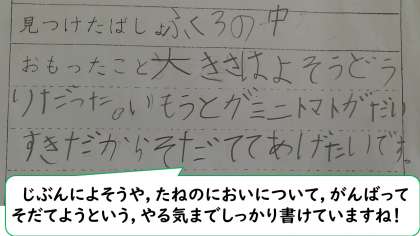 見つけたばしょ ふくろの中
おもったこと 大きさはよそうどう
りだった。いもうとがミニトマトがだい
すきだからそだててあげたいです。
じぶんによそうや,たねのにおいについて,がんばって
そだてようという,やる気までしっかり書けていますね!